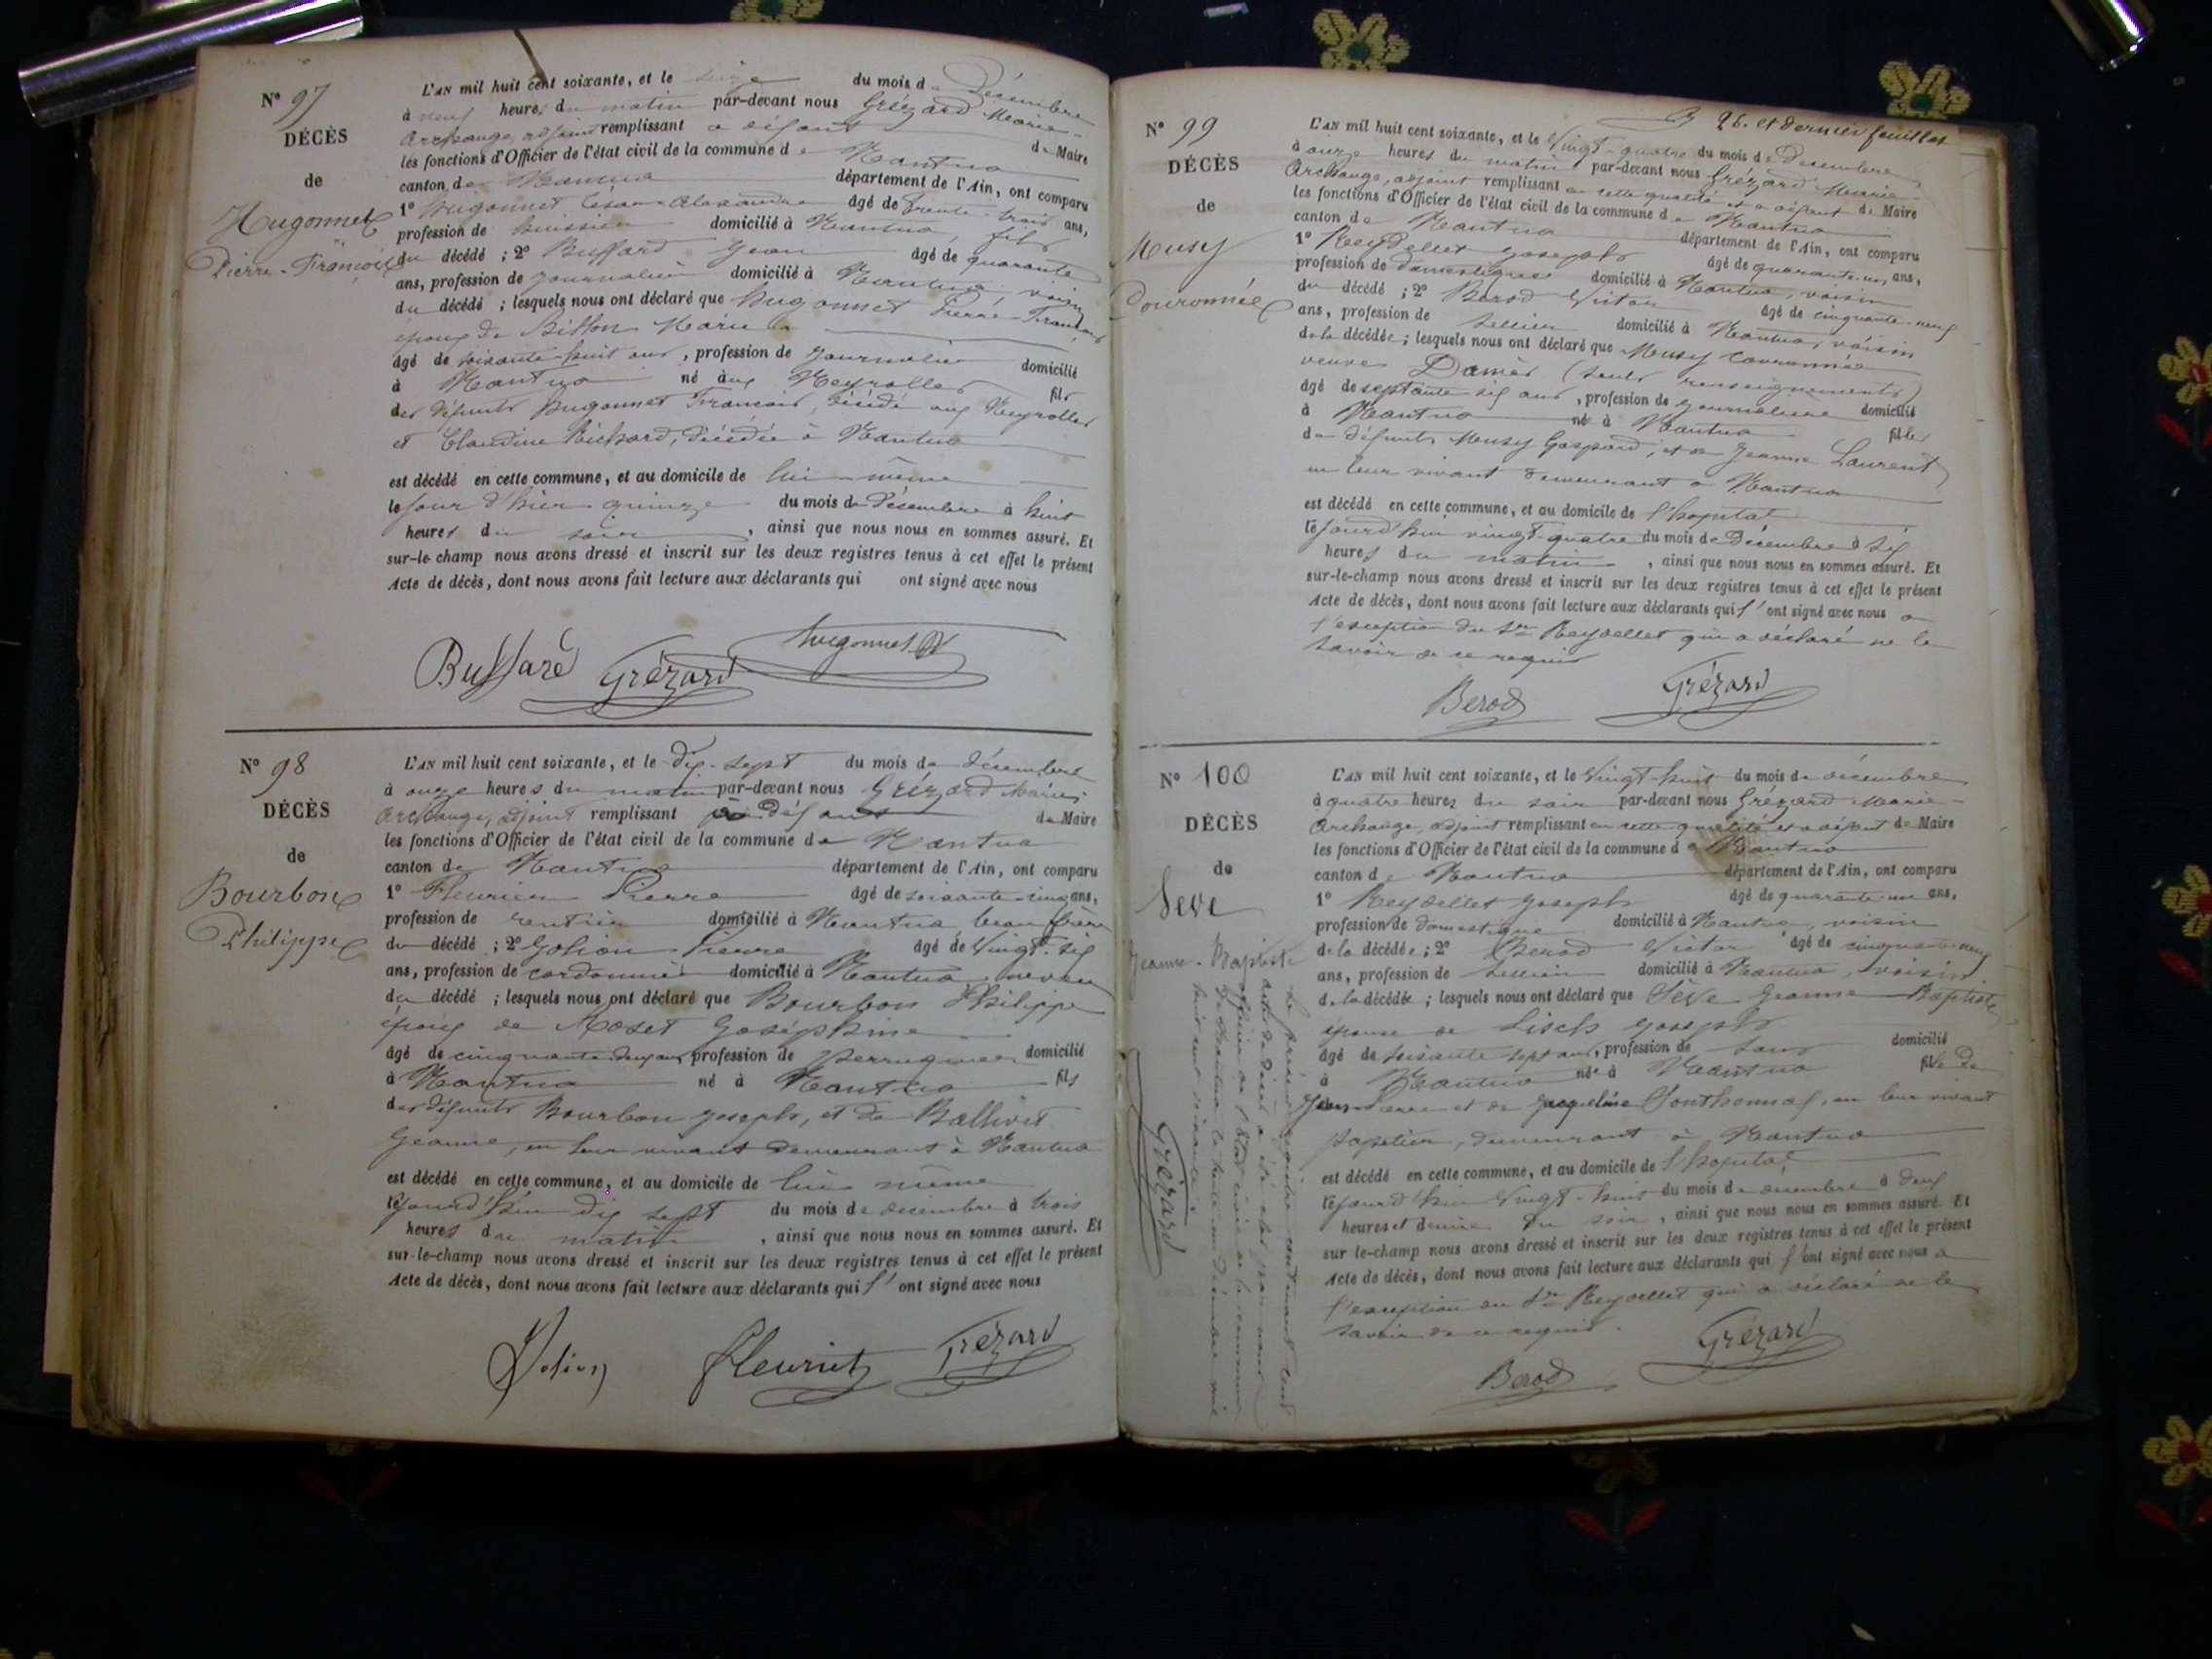 N° 97
DÉCÈS
de
Hugonnet
Pierre-François
L'AN mil huit cent soixante, et le seize du mois de Décembre
à neuf heures du matin par-devant nous Grézard Marie-
Archange, adjoint remplissant a défaut de Maire
les fonctions d'Officier de l'état civil de la commune de Nantua
canton de Nantua département de l'Ain, ont comparu
1° Hugonnet César Alexandre âgé de trente-trois ans,
profession de huissier domicilié à Nantua, fils
du décédé ; 2° Buffard Jean âgé de quarante
ans, profession de journalier domicilié à Nantua voisin
du décédé ; lesquels nous ont déclaré que hugonnet Pierre-François
époux de Billon Marie
âgé de soixante-huit ans, profession de journalier domicilié
à Nantua né aux Neyrolles fils
des défunts hugonnet François, décédé aux Neyrolles
et Claudine Richard, décédée à Nantua
est décédé en cette commune, et au domicile de lui-même
le jour d'hier quinze du mois de Décembre à huit
heures du soir, ainsi que nous nous en sommes assuré. Et
sur-le-champ nous avons dressé et inscrit sur les deux registres tenus à cet effet le présent
Acte de décès, dont nous avons fait lecture aux déclarants qui ont signé avec nous
Buffard Grézard hugonnet
N° 98
DÉCÈS
de
Bourbon
Philippe
L'AN mil huit cent soixante, et le dix-sept du mois de décembre
à onze heures du matin par-devant nous Grézard Marie-
Archange, adjoint remplissant à défaut de Maire
les fonctions d'Officier de l'état civil de la commune de Nantua
canton de Nantua département de l'Ain, ont comparu
1° Pierre âgé de soixante-cinq ans,
profession de rentier domicilié à Nantua, beau frère
du décédé ; 2° Pierre âgé de vingt-six
ans, profession de cordonnier domicilié à Nantua neveu
du décédé ; lesquels nous ont déclaré que Bourbon Philippe
époux de Moset Joséphine
âgé de cinquante-deux ans, profession de perruquier domicilié
à Nantua né à Nantua fils
des défunts Bourbon Joseph, et de Ballivet
Jeanne, en leur vivant demeurant à Nantua
est décédé en cette commune, et au domicile de lui même
le jourd'hui dix sept du mois de décembre à trois
heures du matin, ainsi que nous nous en sommes assuré. Et
sur-le-champ nous avons dressé et inscrit sur les deux registres tenus à cet effet le présent
Acte de décès, dont nous avons fait lecture aux déclarants qui l'ont signé avec nous
Grézard
26. et dernier feuillet
N° 99
DÉCÈS
de
Musy
Couronnée
L'AN mil huit cent soixante, et le Vingt-quatre du mois de Décembre
à onze heures du matin par-devant nous Grézard Marie-
Archange, adjoint remplissant en cette qualité et a défaut de Maire
les fonctions d'Officier de l'état civil de la commune de Nantua
canton de Nantua département de l'Ain, ont comparu
1° Reydellet Joseph âgé de quarante-un ans,
profession de domestique domicilié à Nantua, voisin
du décédé ; 2° Berod Victor âgé de cinquante-neuf
ans, profession de sellier domicilié à Nantua, voisin
de la décédée ; lesquels nous ont déclaré que Musy Couronnée
veuve Damer (seuls renseignements)
âgé de septante six ans, profession de journalière domicilié
à Nantua né à Nantua fille
de défunts Musy Gaspard, et de Jeanne Laurent
en leur vivant demeurant à Nantua
est décédé en cette commune, et au domicile de l'hopital
le jourd'hui vingt-quatre du mois de Décembre à six
heures du matin, ainsi que nous nous en sommes assuré. Et
sur-le-champ nous avons dressé et inscrit sur les deux registres tenus à cet effet le présent
Acte de décès, dont nous avons fait lecture aux déclarants qui l'ont signé avec nous a
l'exception du Sr Reydellet qui a déclaré ne le
savoir de ce requis
Berod Grézard
N° 100
DÉCÈS
de
Seve
Jeanne-Baptiste
L'AN mil huit cent soixante, et le Vingt-huit du mois de décembre
à quatre heures du soir par-devant nous Grézard Marie-
Archange, adjoint remplissant en cette qualité et a défaut de Maire
les fonctions d'Officier de l'état civil de la commune de Nantua
canton de Nantua département de l'Ain, ont comparu
1° Reydellet Joseph âgé de quarante-un ans,
profession de domestique domicilié à Nantua, voisin
de la décédée ; 2° Berod Victor âgé de cinquante-neuf
ans, profession de sellier domicilié à Nantua, voisin
de la décédée ; lesquels nous ont déclaré que Sève Jeanne-Baptiste
épouse de Lisch Joseph
âgé de soixante sept ans, profession de sans domicilié
à Nantua née à Nantua fille de
Jean-Pierre et de Jacqueline Southonnax, en leur vivant
papetier, demeurant à Nantua
est décédé en cette commune, et au domicile de l'hopital
le jourd'hui vingt-huit du mois de décembre à deux
heures et demie du soir, ainsi que nous nous en sommes assuré. Et
sur le-champ nous avons dressé et inscrit sur les deux registres tenus à cet effet le présent
Acte de décès, dont nous avons fait lecture aux déclarants qui l'ont signé avec nous a
l'exception du Sr Reydellet qui a déclaré ne le
savoir de ce requis.
Berod Grézard
Le présent registre contenant cent
actes de décès a été clos par nous
officier de l'état civil de la commune
de Nantua le trente un Décembre mil
huit cent soixante
Grézard